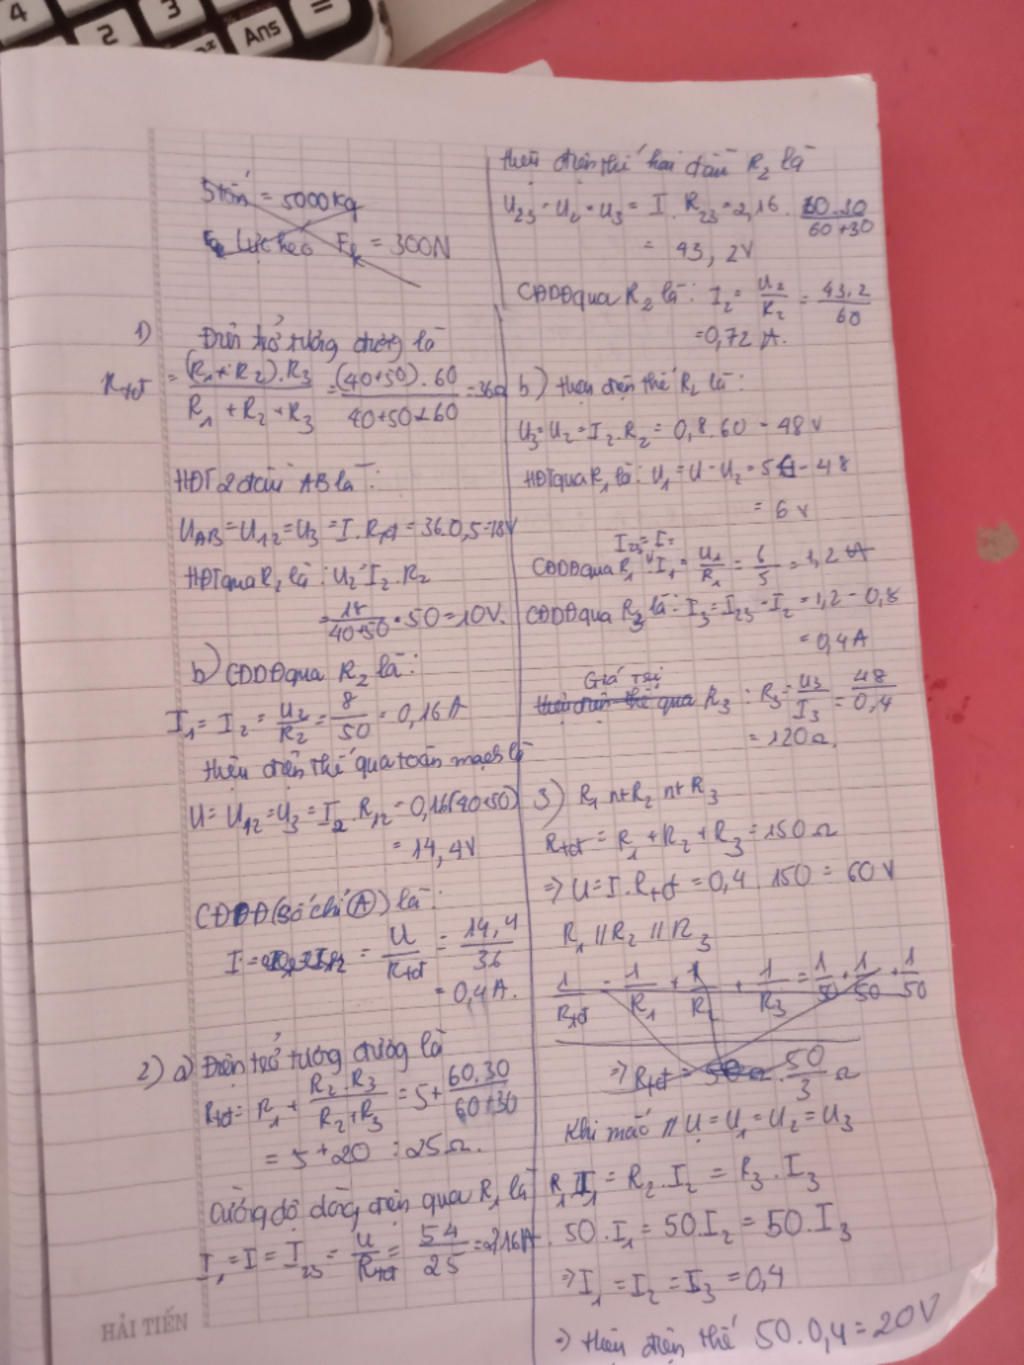 4
2
3
Ans
=
5 tấn = 5000 kg
Lực kéo Fk = 300N
1) Điện trở tương đương là
Rtđ = (R1 + R2).R3 / R1 + R2 + R3 = (40+50).60 / 40+50+60 = 36Ω
HĐT 2 đầu AB là:
UAB = U12 = U3 = I.RTĐ = 36.0,5 = 18V
HĐT qua R2 là: U2 = I2.R2
= 18 / 40+50 . 50 = 10V.
b) CĐDĐ qua R2 là:
I1 = I2 = U2 / R2 = 8 / 50 = 0,16A
Hiệu điện thế qua toàn mạch là
U = U12 = U3 = I2.R12 = 0,16(40+50)
= 14,4V
CĐDĐ (số chỉ Ⓐ) là:
I = U / Rtđ = 14,4 / 36
= 0,4A.
2) a) Điện trở tương đương là
Rtđ = R1 + R2.R3 / R2+R3 = 5 + 60.30 / 60+30
= 5 + 20 = 25Ω.
Cường độ dòng điện qua R1 là
I1 = I = I23 = U / Rtđ = 54 / 25 = 2,16A.
HẢI TIẾN
Hiệu điện thế hai đầu R2 là
U23 = U2 = U3 = I.R23 = 2,16. 60.30 / 60+30
= 43,2V
CĐDĐ qua R2 là: I2 = U2 / R2 = 43,2 / 60
= 0,72 A.
b) Hiệu điện thế R2 là:
U3 = U2 = I2.R2 = 0,8.60 = 48V
HĐT qua R1 là: U1 = U - U2 = 54 - 48
= 6V
I23 = I =
CĐDĐ qua R1: I1 = U1 / R1 = 6 / 5 = 1,2A
CĐDĐ qua R3 là: I3 = I23 - I2 = 1,2 - 0,8
= 0,4A
Giá trị
hiệu điện thế qua R3: R3 = U3 / I3 = 48 / 0,4
= 120Ω.
3) R1 nt R2 nt R3
Rtđ = R1 + R2 + R3 = 150Ω
=> U = I.Rtđ = 0,4.150 = 60V
R1 // R2 // R3
1 / Rtđ = 1 / R1 + 1 / R2 + 1 / R3 = 1 / 50 + 1 / 50 + 1 / 50
=> Rtđ = 50 / 3 Ω
Khi mắc // U = U1 = U2 = U3
R1.I1 = R2.I2 = R3.I3
50.I1 = 50.I2 = 50.I3
=> I1 = I2 = I3 = 0,4
=> Hiệu điện thế 50.0,4 = 20V